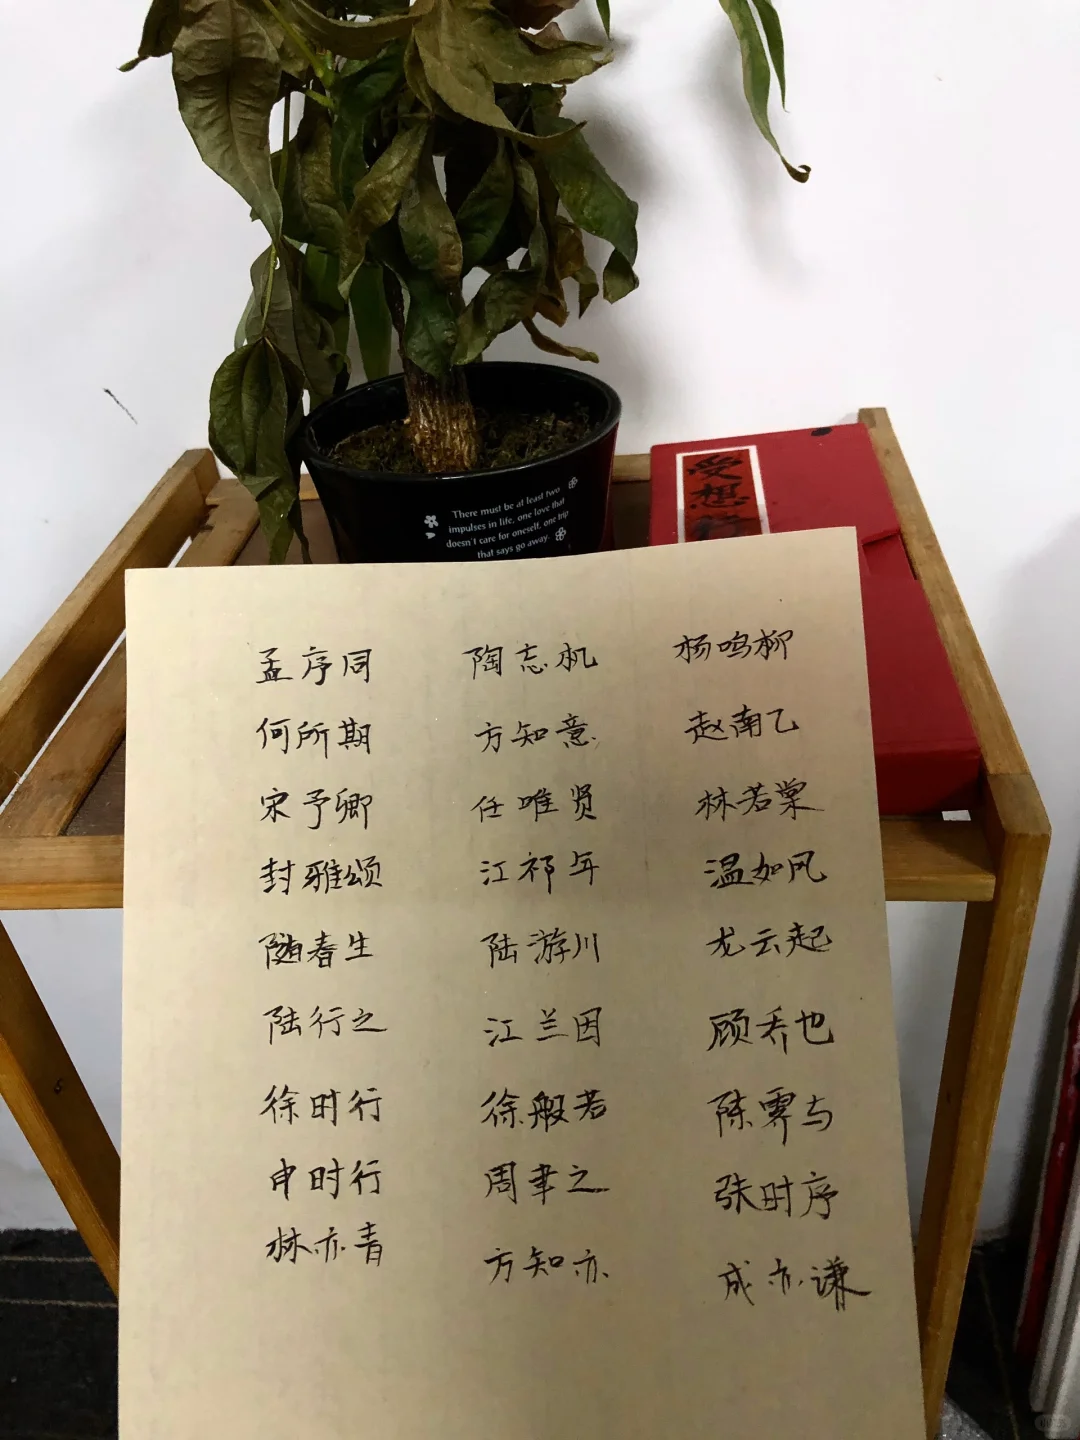 There must be at least two
impulses in life, one love that
doesn't care for oneself, one trip
that says go away.
受想行
孟序同 陶志机 杨鸣柳
何所期 方知意 赵南乙
宋予卿 任唯贤 林若棠
封雅颂 江祁年 温如风
随春生 陆游川 龙云起
陆行之 江兰因 顾乔也
徐时行 徐般若 陈霁与
申时行 周聿之 张时序
林亦青 方知亦 成亦谦